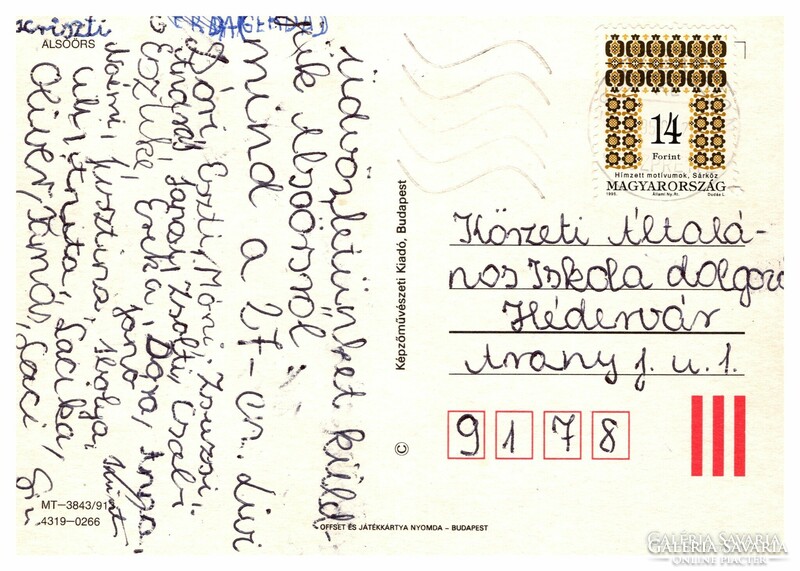 Kriszti
ALSÓÖRS
Üdvözletünket küld-
jük Alsóörsről:
mind a 27-en. Lívi
Dóri, Eszti, Móni, Zsuzsi,
András, Zsolti, Csabi
Esztike, Dóra, Anna,
Jenő
Noémi, Jusztina,
Anita, Lacika,
Olivér, Tamás, Laci
MT–3843/91
4319–0266
Képzőművészeti Kiadó, Budapest
©
OFFSET ÉS JÁTÉKKÁRTYA NYOMDA – BUDAPEST
14
Forint
Hímzett motívumok, Sárköz
MAGYARORSZÁG
Állami Ny. Rt.
Körzeti Általá-
nos Iskola dolgozó
Hédervár
Arany J. u. 1.
9178
GALERIA SAVARIA
ONLINE PIACTÉR